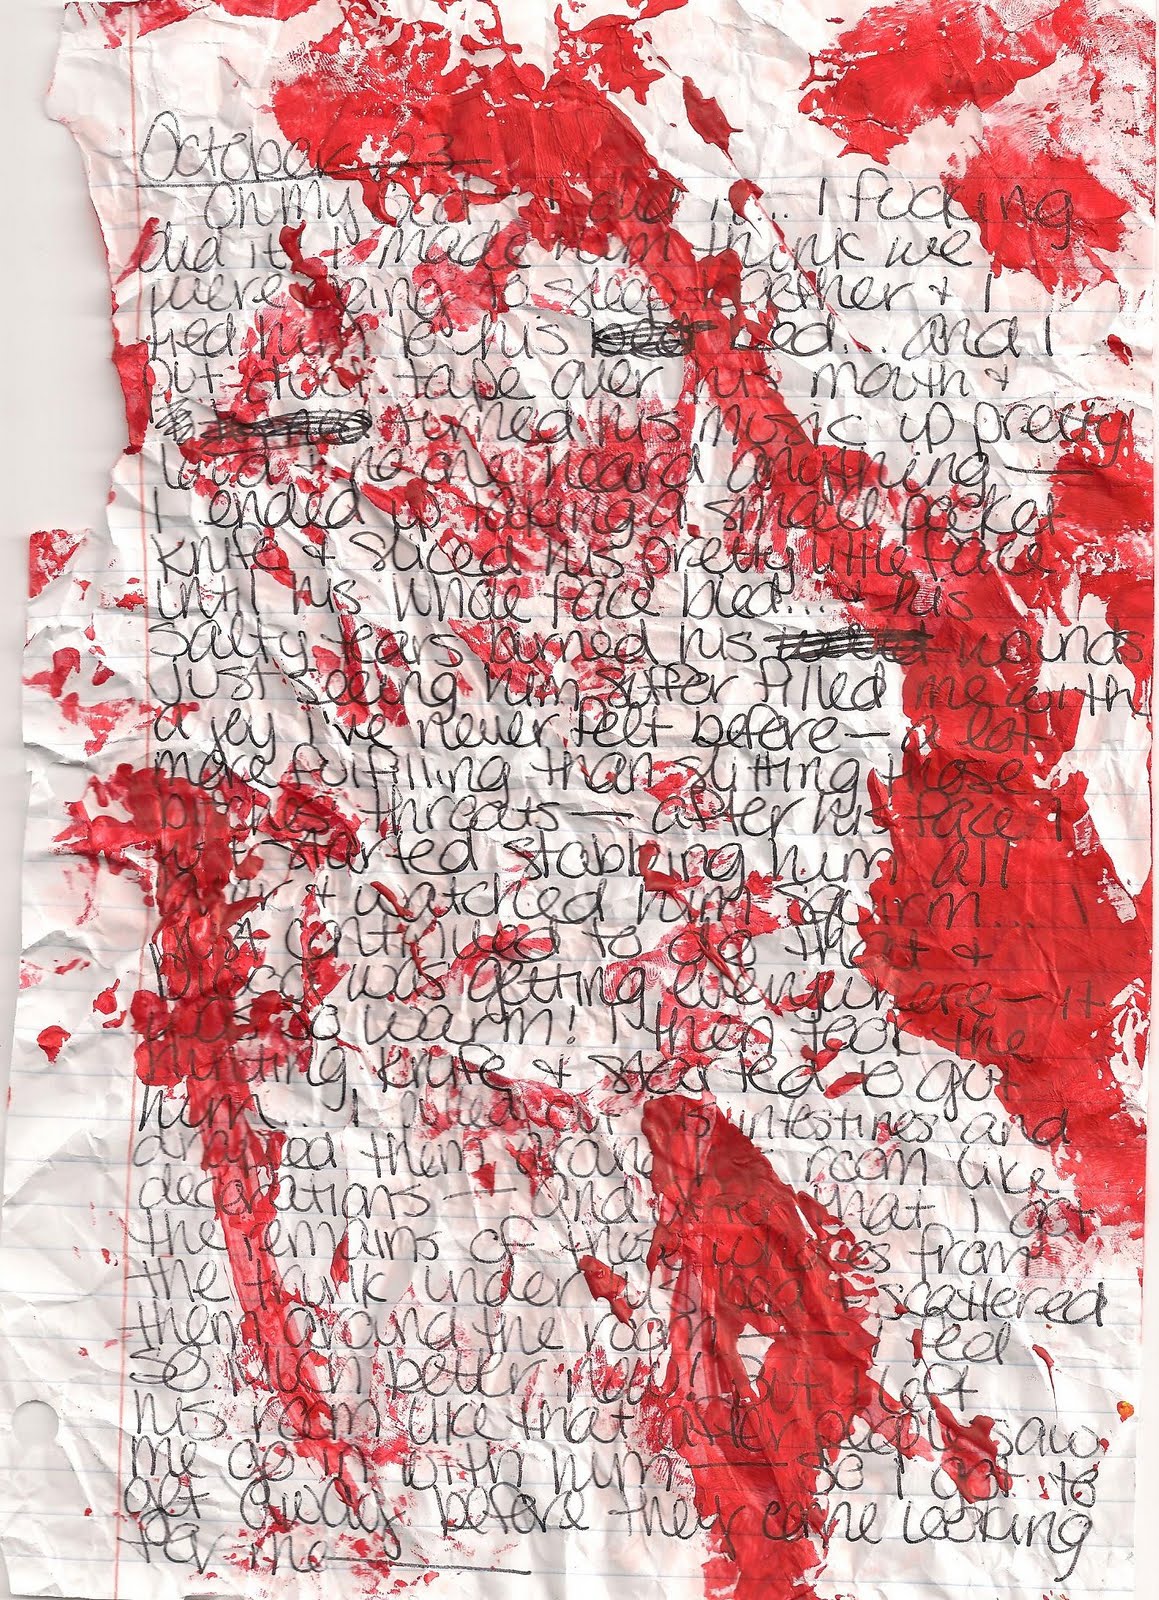 October 23
Oh my God - i did it... I fucking
did it I made him think we
were going to sleep together + I
tied him to his bed... and I
put duct tape over his mouth +
turned his music up pretty
loud + no one heard anything —
I ended up taking a small pocket
knife + sliced his pretty little face
until his whole face bled... + his
salty tears burned his wounds
Just seeing him suffer filled me with
a joy I've never felt before — a lot
more fulfilling than slitting those
bitches threoats — after his face I
just started stabbing him all
over + watched him squirm... I
just continued to do that +
blood was getting everywhere — it
was so warm! I then took the
hunting knife + started to gut
him... I pulled out his intestines and
draped them around his room like
decorations — and after that I got
the remains of those whores from
the trunk under his bed + scattered
them around the room — I feel
so much better now! But I left
his room like that after people saw
me go in with him — so I got to
get away before they come looking
for me —